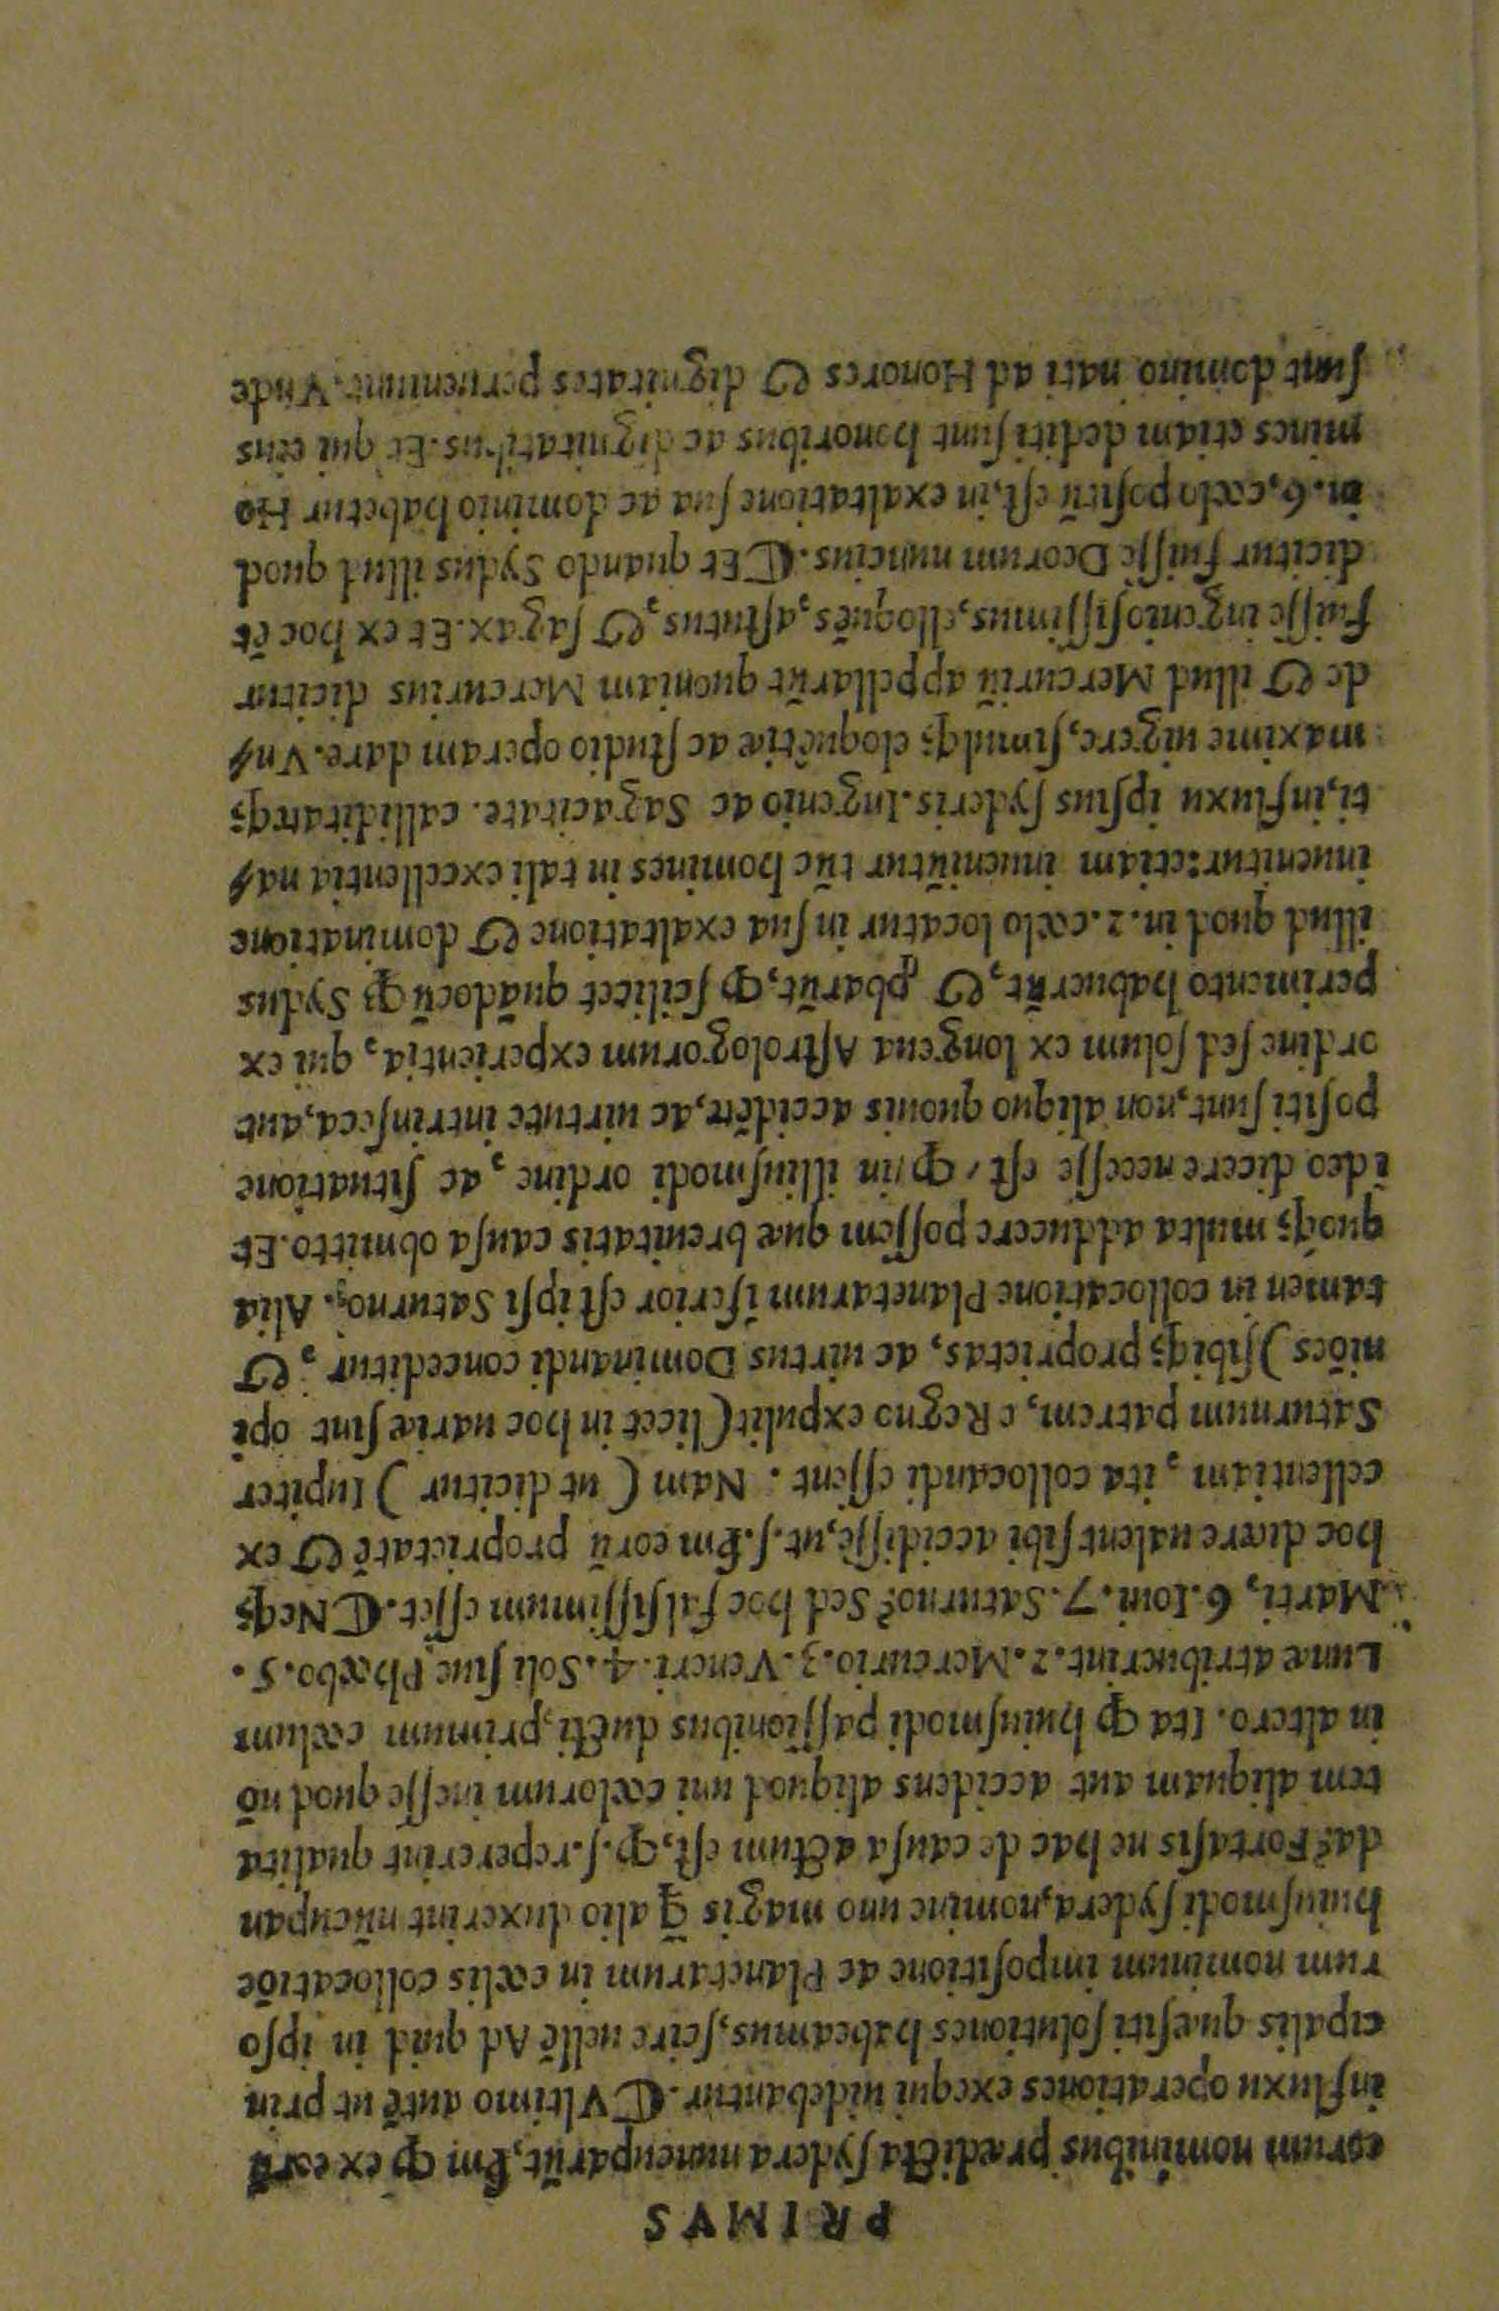 PRIMVS
eorum nominibus prædicta sydera nuncuparūt, ẜm ꝙ ex eorū
influxu operationes exequi uidebantur. ⸿ Vltimo autē ut prin
cipalis quæsiti solutiones habeamus, scire uellē Ad quid in ipso
rum nominum impositione ac Planetarum in cœlis collocatiōe
huiusmodi sydera, nomine uno magis ꝗ̃ alio duxerint nūcupan
da? Fortasis ne hac de causa actum est, ꝙ. s. repererint qualita
tem aliquam aut accidens aliquod uni cœlorum inesse quod nō
in altero. Ita ꝙ huiusmodi passionibus ducti, primum cœlum
Lunæ atribuerint. 2. Mercurio. 3. Veneri. 4. Soli siue Phœbo. 5.
Marti, 6. Ioui. 7. Saturno? Sed hoc falsissimum esset. ⸿ Neqꝫ
hoc dicere ualent sibi accidisse, ut. s. ẜm eorū proprietatē & ex
cellentiam, ita collocandi essent. Nam (ut dicitur) Iupiter
Saturnum patrem, e Regno expulit (licet in hoc uariæ sint opi
niōes) sibiqꝫ proprietas, ac uirtus Dominandi conceditur, &
tamen in collocatione Planetarum īferior est ipsi Saturno. Alia
quoqꝫ multa adducere possem quæ breuitatis causa obmitto. Et
ideo dicere necesse est, ꝙ in illiusmodi ordine, ac situatione
positi sunt, non aliquo quouis accidēti, ac uirtute intrinseca, aut
ordine sed solum ex longeua Astrologorum experientia, qui ex
perimento habuerūt, & ꝓbarūt, ꝙ scilicet quādocūqꝫ Sydus
illud quod in. 2. cœlo locatur in sua exaltatione & dominatione
inuenitur: etiam inueniūtur tūc homines in tali excellentia nas
ti, influxu ipsius syderis. Ingenio ac Sagacitate. calliditateqꝫ
maxime uigere, simulqꝫ eloquētiæ ac studio operam dare. Vns
de & illud Mercuriū appellarūt quoniam Mercurius dicitur
fuisse ingeniosissimus, elloquēs, astutus, & sagax. Et ex hoc ēt
dicitur fuisse Deorum nuncius. ⸿ Et quando Sydus illud quod
in. 6, cœlo positū est, in exaltatione sua ac dominio habetur Ho
mines etiam dediti sunt honoribus ac dignitatibus. Et qui eius
sunt domino nati ad Honores & dignitates perueniunt. Vnde